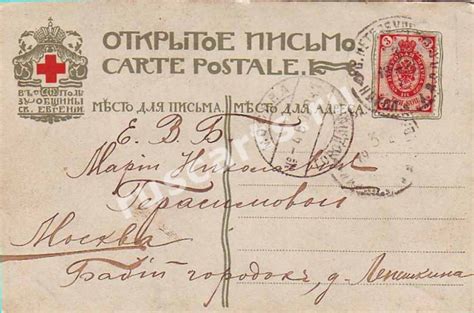 ОТКРЫТОЕ ПИСЬМО.
CARTE POSTALE.
ВЪ ПОЛЬЗУ ОБЩИНЫ
СВ. ЕВГЕНІИ
МѢСТО ДЛЯ ПИСЬМА. МѢСТО ДЛЯ АДРЕСА.
3
Е. В. Б
Маріи Николаевнѣ
Герасимовой
Москва
Бабій городокъ, д. Лепешкина